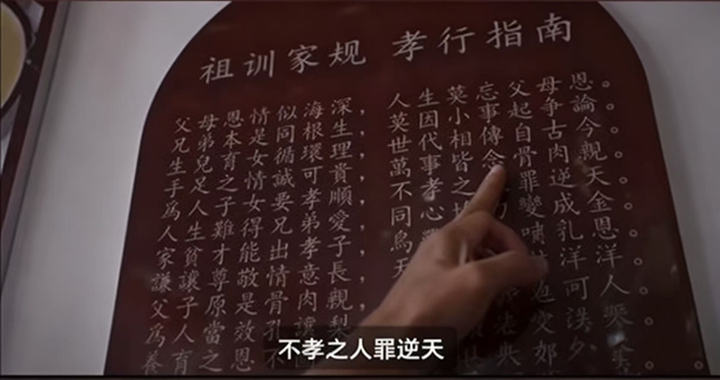 祖训家规 孝行指南
恩論今親天金恩洋人
母争古肉逆成乳洋可
父起自骨罪變哺
忘事傳念
莫小相皆之
生因代事孝心
人莫世萬不同烏天
深生理貴順愛子長親梨
海根環可孝弟孝意肉讓
似同循誠要兄出情骨孔
情是女情女得能敬是效
恩本育之子難才尊原當
母弟兒足人生貧讓子人
父兄生手為人家謙父為
不孝之人罪逆天